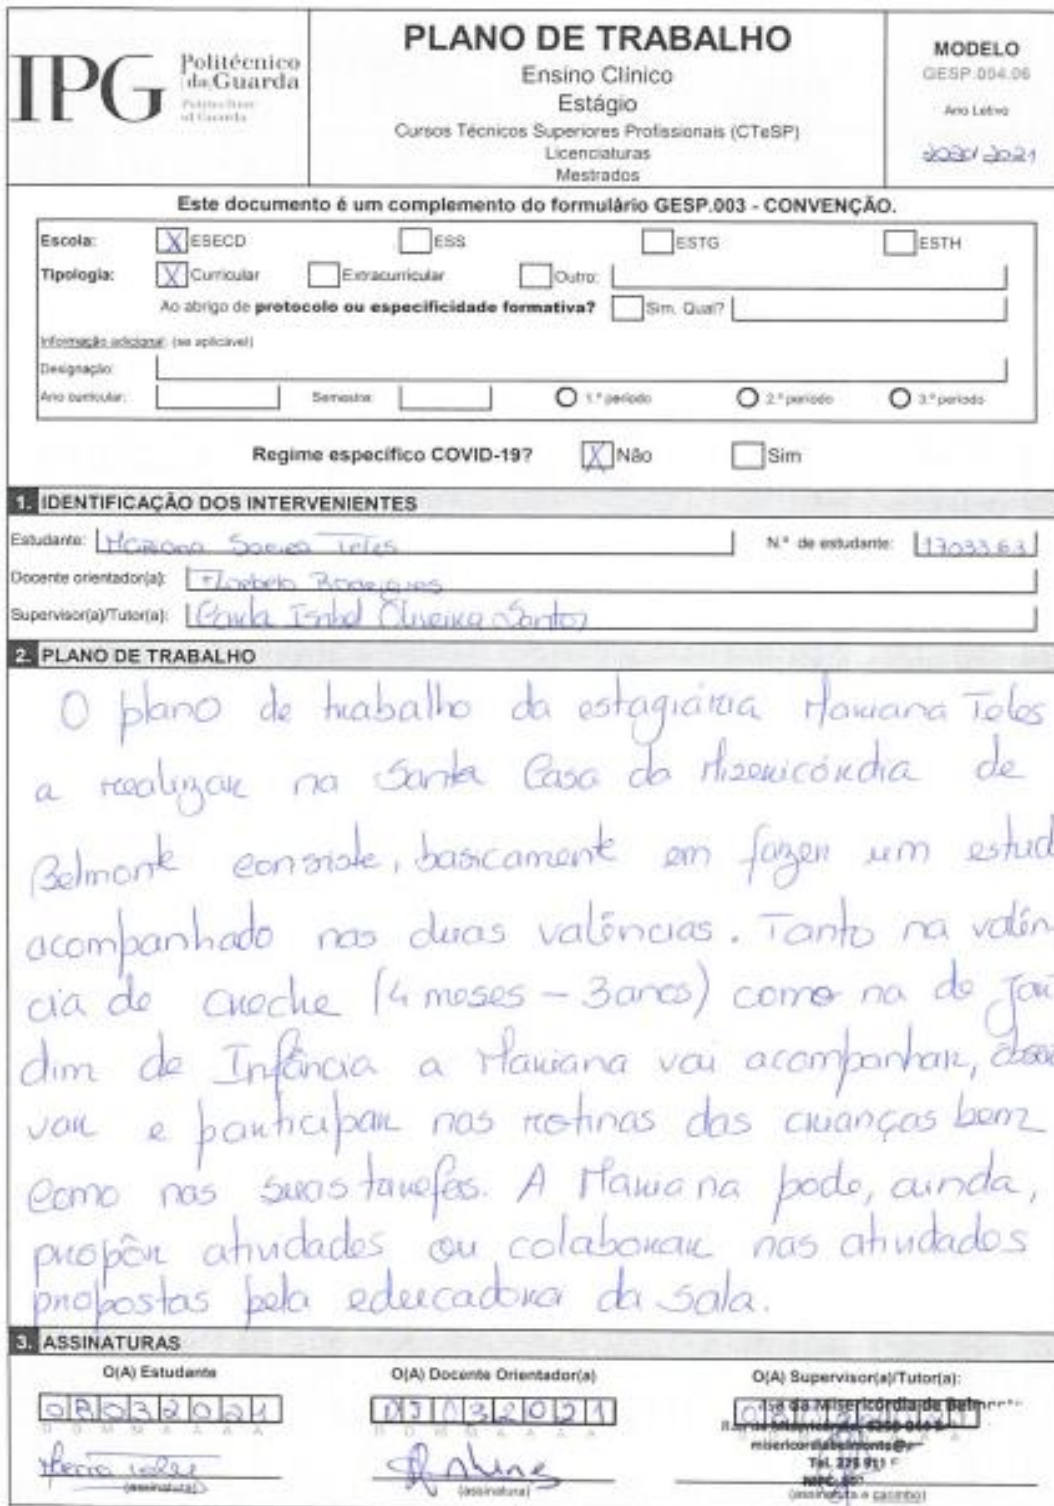 IPG Politécnico da Guarda
PLANO DE TRABALHO
Ensino Clínico
Estágio
Cursos Técnicos Superiores Profissionais (CTeSP)
Licenciaturas
Mestrados
MODELO
GESP.004.06
Ano Letivo
2020/2021
Este documento é um complemento do formulário GESP.003 - CONVENÇÃO.
Escola: X ESECD ESS ESTG ESTH
Tipologia: X Curricular Extracurricular Outro:
Ao abrigo de protocolo ou especificidade formativa? Sim. Qual?
Informação adicional: (se aplicável)
Designação:
Ano curricular: Semestre: 1.º período 2.º período 3.º período
Regime específico COVID-19? X Não Sim
1. IDENTIFICAÇÃO DOS INTERVENIENTES
Estudante: Mariana Teles N.º de estudante: 1703363
Docente orientador(a): Florbela Rodrigues
Supervisor(a)/Tutor(a): Carla Isabel Oliveira Santos
2. PLANO DE TRABALHO
O plano de trabalho da estagiária Mariana Teles
a realizar na Santa Casa da Misericórdia de
Belmonte consiste, basicamente em fazer um estud
acompanhado nas duas valências. Tanto na valên
cia de creche (4 meses - 3 anos) como na de Jar
dim de Infância a Mariana vai acompanhar, obser
var e participar nas rotinas das crianças bem
como nas suas tarefas. A Mariana pode, ainda,
propôr atividades ou colaborar nas atividades
propostas pela educadora da sala.
3. ASSINATURAS
O(A) Estudante O(A) Docente Orientador(a) O(A) Supervisor(a)/Tutor(a):
08032021
da Misericórdia de
(assinatura) (assinatura) (assinatura e carimbo)